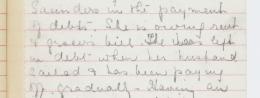 Saunders in the payment
of debts. She is owing rent
& grocer's bill. She was left
in debt when her husband
sailed & has been paying
off gradually - Having an